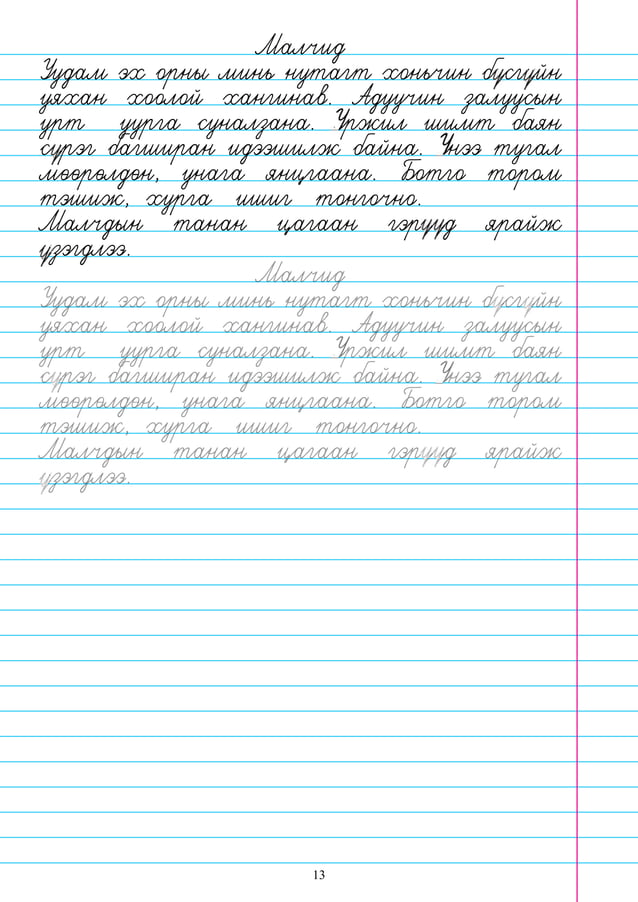 Малчид
Уудам эх орны минь нутагт хоньчин бүсгүйн
уяхан хоолой хангинав. Адуучин залуусын
урт уурга суналзана. Үржил шимт баян
сүрэг багширан идээшилж байна. Үнээ тугал
мөөрөлдөн, унага янцгаана. Ботго тором
тэшиж, хурга ишиг тонгочно.
Малчдын танан цагаан гэрүүд ярайж
үзэгдлээ.
Малчид
Уудам эх орны минь нутагт хоньчин бүсгүйн
уяхан хоолой хангинав. Адуучин залуусын
урт уурга суналзана. Үржил шимт баян
сүрэг багширан идээшилж байна. Үнээ тугал
мөөрөлдөн, унага янцгаана. Ботго тором
тэшиж, хурга ишиг тонгочно.
Малчдын танан цагаан гэрүүд ярайж
үзэгдлээ.
13